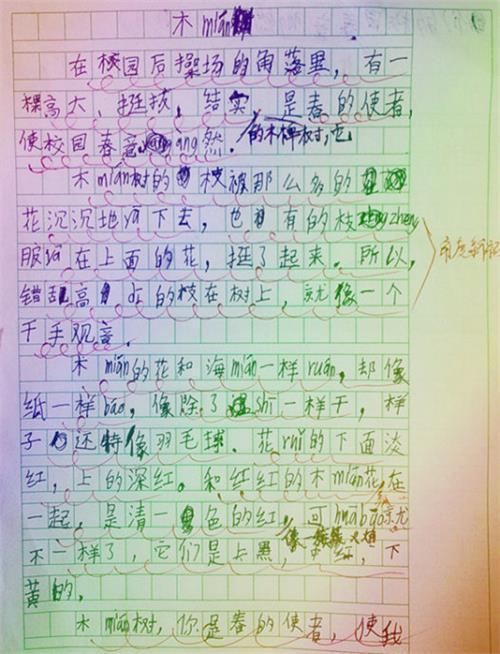 木mián
在校园后操场的角落里，有一
棵高大、挺拔、结实，是春的使者，
使校园春意 àng然．的木棉树，它
木mián树的 枝被那么多的
花沉沉地yā下去，也有有的枝 zhēng
服yā在上面的花，挺了起来。所以，
错乱高 的枝在树上，就像一个
千手观音．
木mián的花和海mián一样ruǎn，却像
纸一样báo，像除了 shī一样干，样
子 还特像羽毛球．花ruǐ的下面淡
红，上的深红。和红红的木mián花，在
一起，是清一色的红，可huābāo就
像一簇簇火焰
不一样了，它们是上黑，中红，下
黄的．
木mián树，你是春的使者，使我